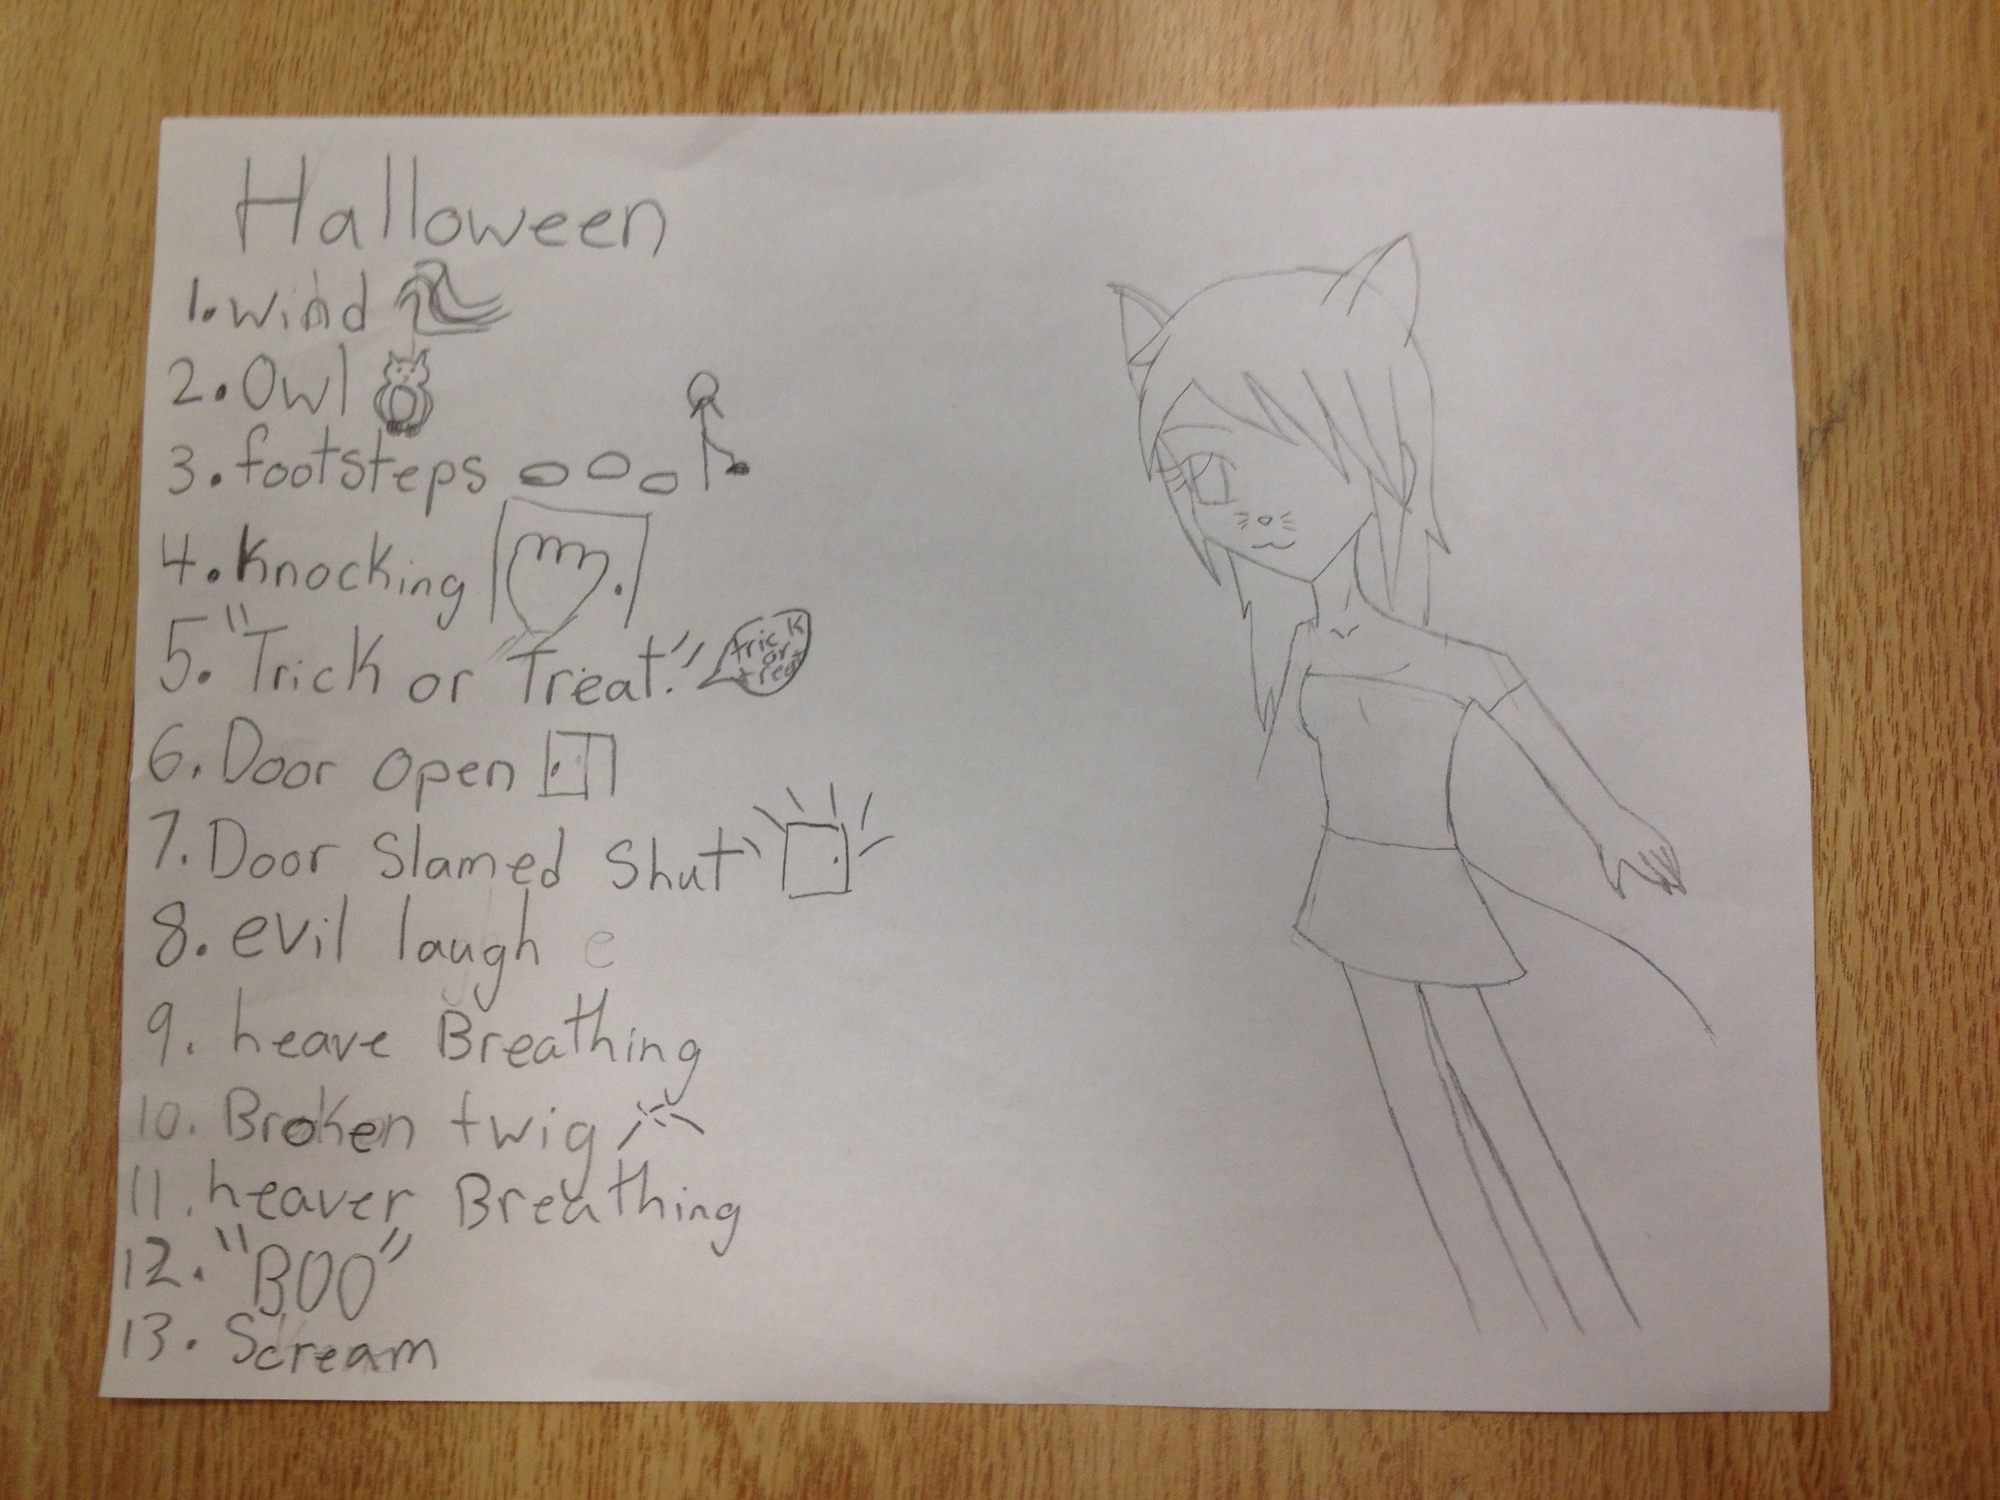 Halloween
1. wind
2. Owl
3. footsteps
4. Knocking
5. "Trick or Treat."
trick
or
treat
6. Door open
7. Door Slamed Shut
8. evil laugh e
9. heave Breathing
10. Broken twig
11. heaver Breathing
12. "BOO"
13. Scream